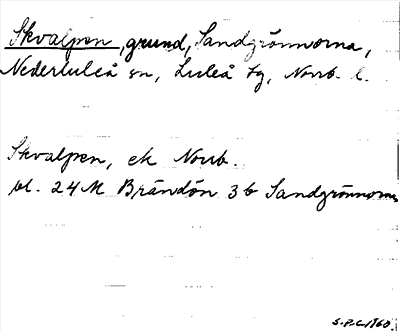 Skvalpen, grund, Sandgrönnorna,
Nederluleå sn, Luleå tg, Norrb. l.
Skvalpen, ek Norrb.
bl. 24 M Brändön 3 b Sandgrönnorna
S.P.L. 1960.